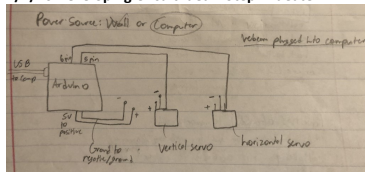 Power Source: Wall or Computer
plugged into computer
6pin 8pin
USB
to comp
Arduino
5V
to
positive
Ground to
negative/ground
vertical servo
horizontal servo
- + - + - +